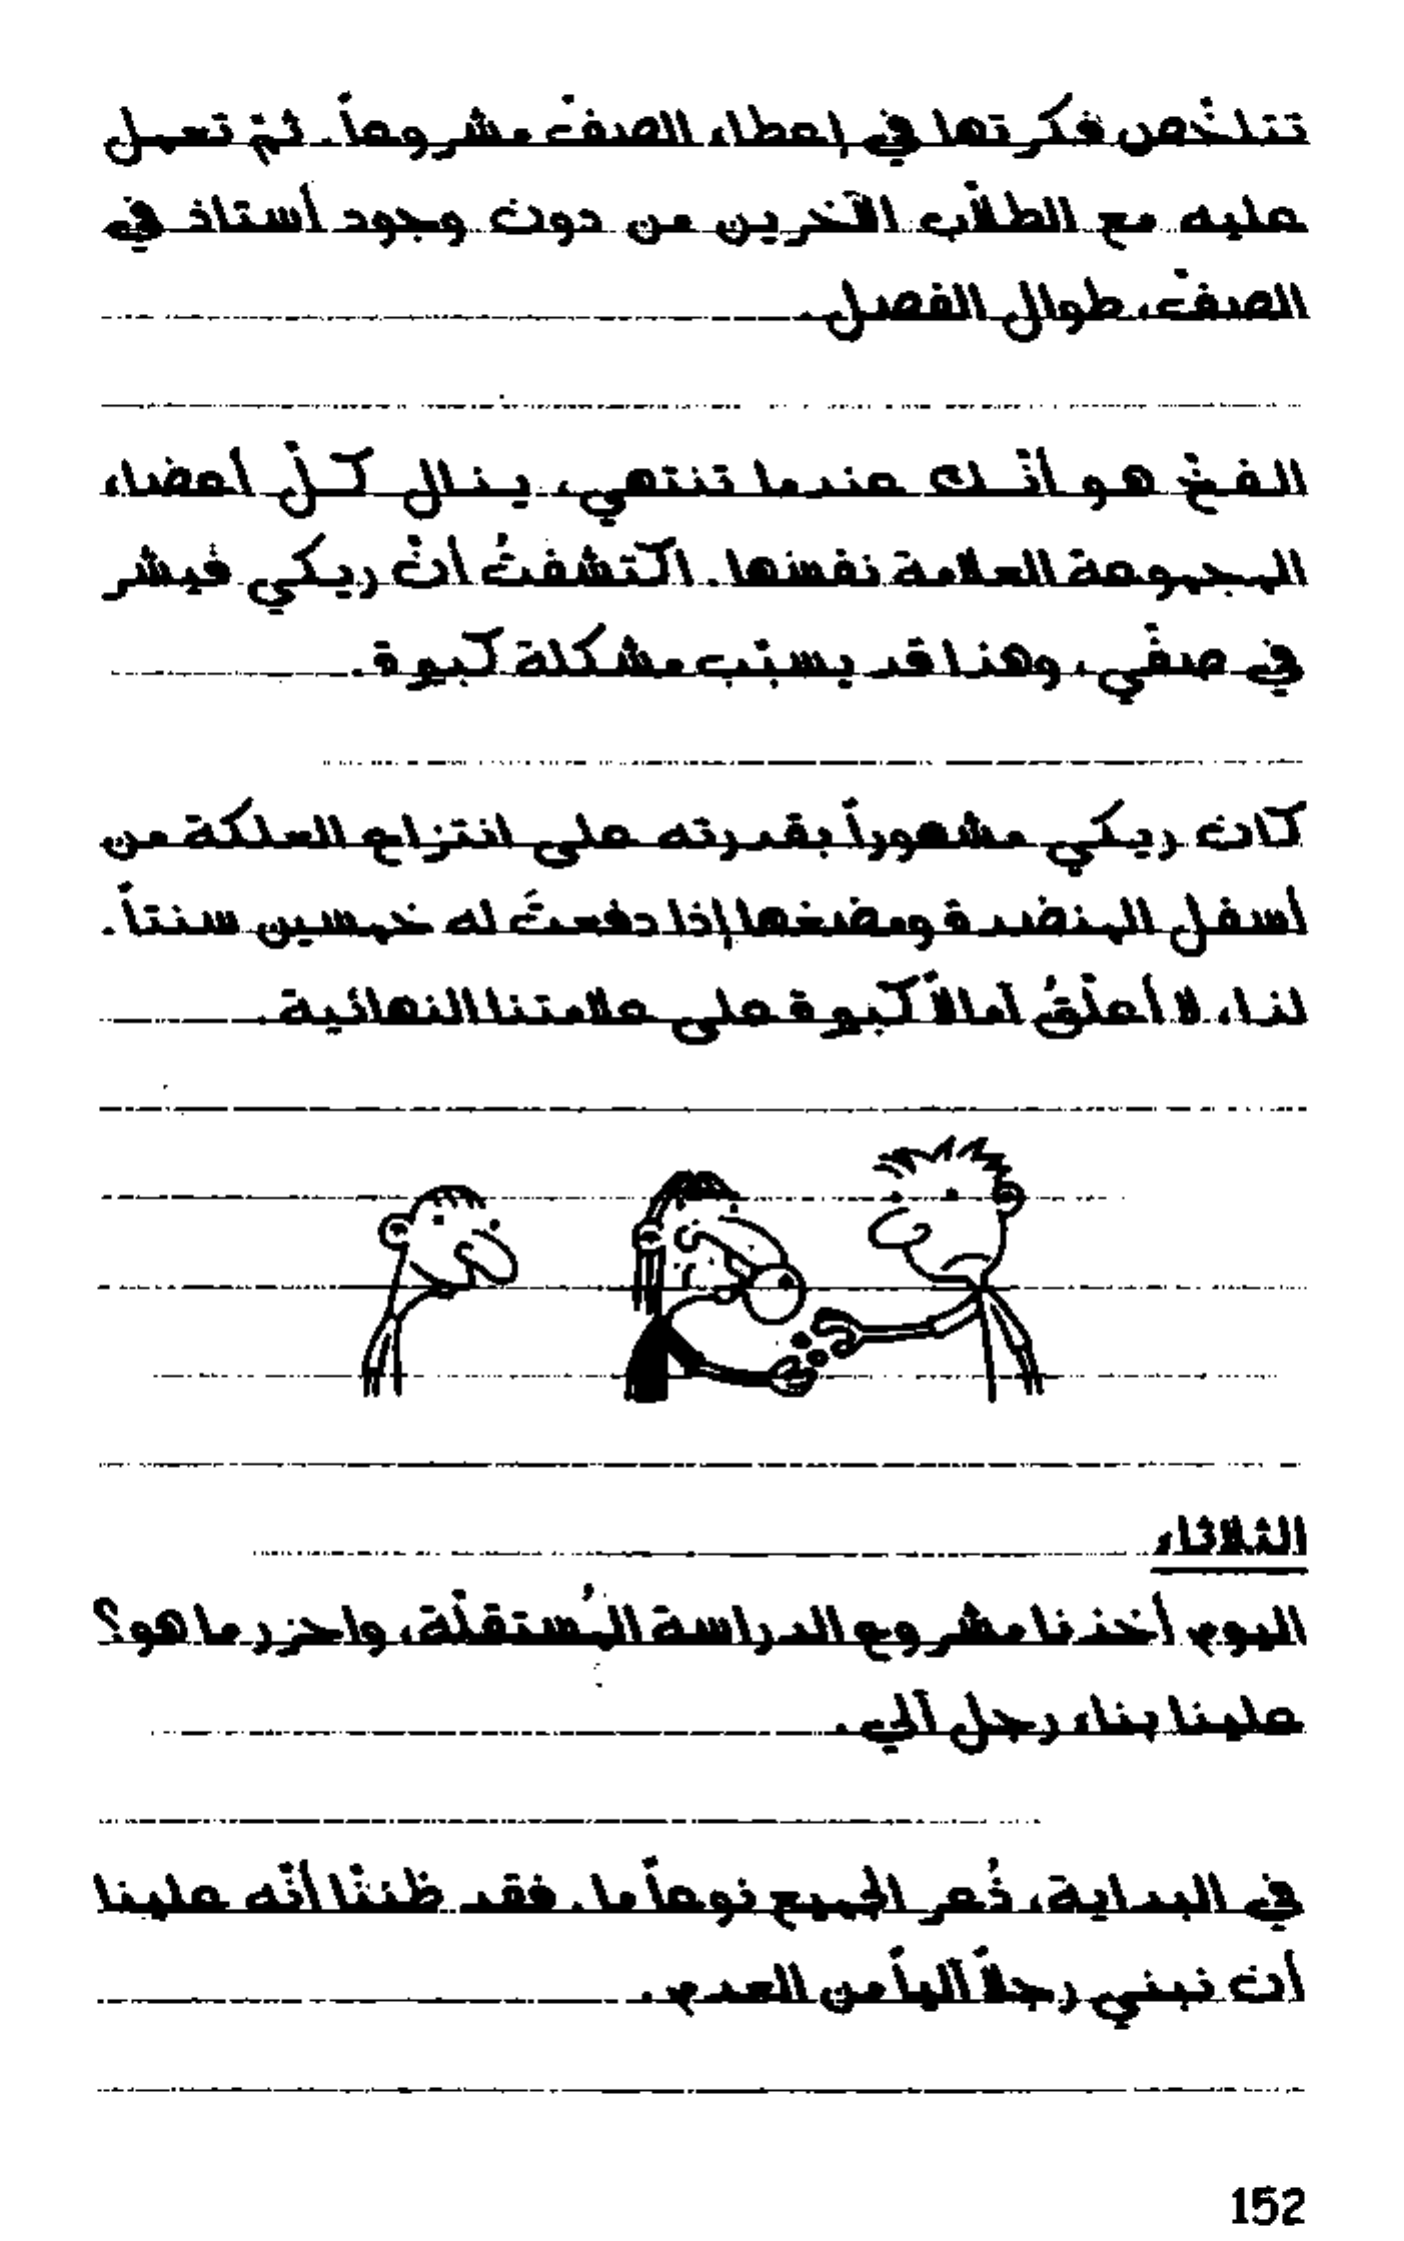 تتلخّص فكرتها في إعطاء الصفّ مشروعاً. ثمّ تعمل
عليه مع الطلاّب الآخرين من دون وجود أستاذ في
الصفّ، طوال الفصل.
الفخّ هو أنّك عندما تنتهي، ينال كلّ أعضاء
المجموعة العلامة نفسها. اكتشفتُ أنّ ريكي فيشر
في صفّي، وهذا قد يسبّب مشكلة كبيرة.
كان ريكي مشهوراً بقدرته على انتزاع العلكة من
أسفل المنضدة ومضغها إذا دفعتَ له خمسين سنتاً.
لذا، لا أعلّقُ آمالاً كبيرة على علامتنا النهائية.
الثلاثاء
اليوم أخذنا مشروع الدراسة المُستقلّة، واحزر ما هو؟
علينا بناء رجل آلي.
في البداية، ذُعر الجميع نوعاً ما. فقد ظننّا أنّه علينا
أن نبني رجلاً آلياً من العدم.
152